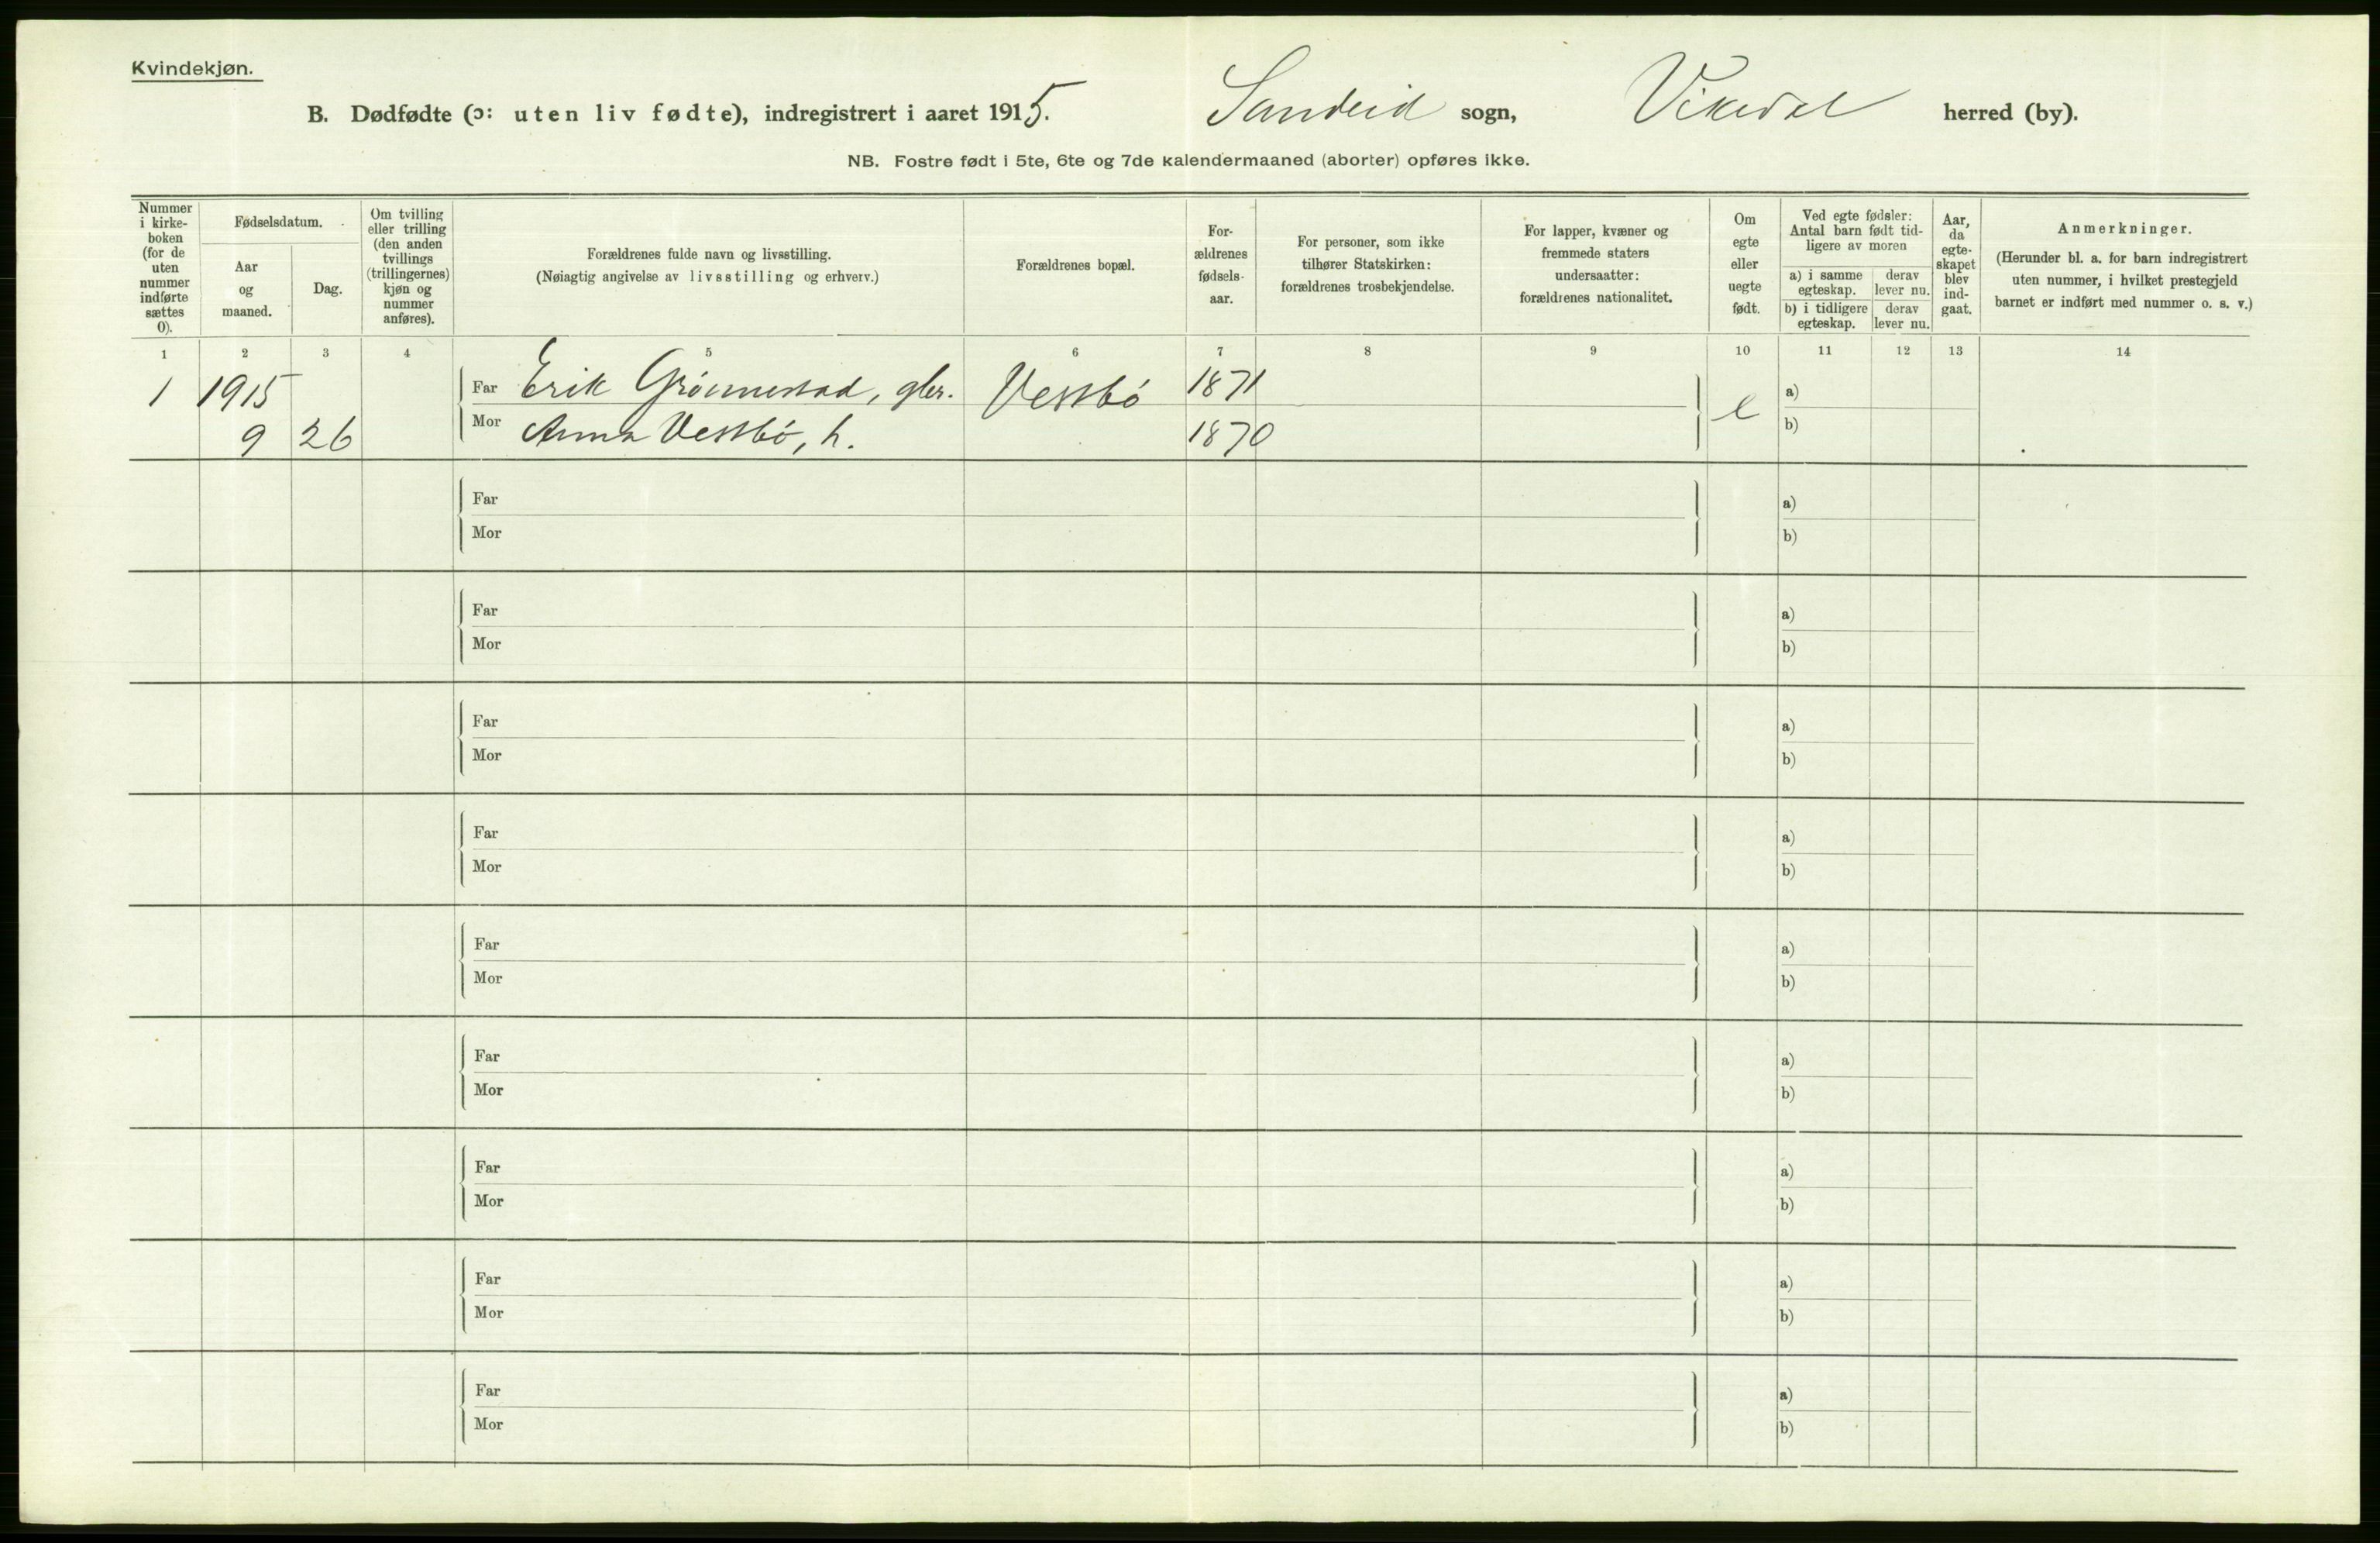 Kvindekjøn.
B. Dødfødte (ɔ: uten liv fødte), indregistrert i aaret 1915. Sandeid sogn, Vikedal herred (by).
NB. Fostre født i 5te, 6te og 7de kalendermaaned (aborter) opføres ikke.
Nummer i kirke-boken (for de uten nummer indførte sættes 0).
Fødselsdatum.
Aar og maaned.
Dag.
Om tvilling eller trilling (den anden tvillings (trillingernes) kjøn og nummer anføres).
Forældrenes fulde navn og livsstilling.
(Nøiagtig angivelse av livsstilling og erhverv.)
Forældrenes bopæl.
For-ældrenes fødsels-aar.
For personer, som ikke tilhører Statskirken: forældrenes trosbekjendelse.
For lapper, kvæner og fremmede staters undersaatter: forældrenes nationalitet.
Om egte eller uegte født.
Ved egte fødsler: Antal barn født tid-ligere av moren
a) i samme egteskap.
derav lever nu.
b) i tidligere egteskap.
derav lever nu.
Aar, da egte-skapet blev ind-gaat.
Anmerkninger.
(Herunder bl. a. for barn indregistrert uten nummer, i hvilket prestegjeld barnet er indført med nummer o. s. v.)
1 2 3 4 5 6 7 8 9 10 11 12 13 14
1 1915 Far Erik Grönnestad, gbr. Vestbö 1871 e a)
9 26 Mor Anna Vestbö, h. 1870 b)
Far a)
Mor b)
Far a)
Mor b)
Far a)
Mor b)
Far a)
Mor b)
Far a)
Mor b)
Far a)
Mor b)
Far a)
Mor b)
Far a)
Mor b)
Far a)
Mor b)